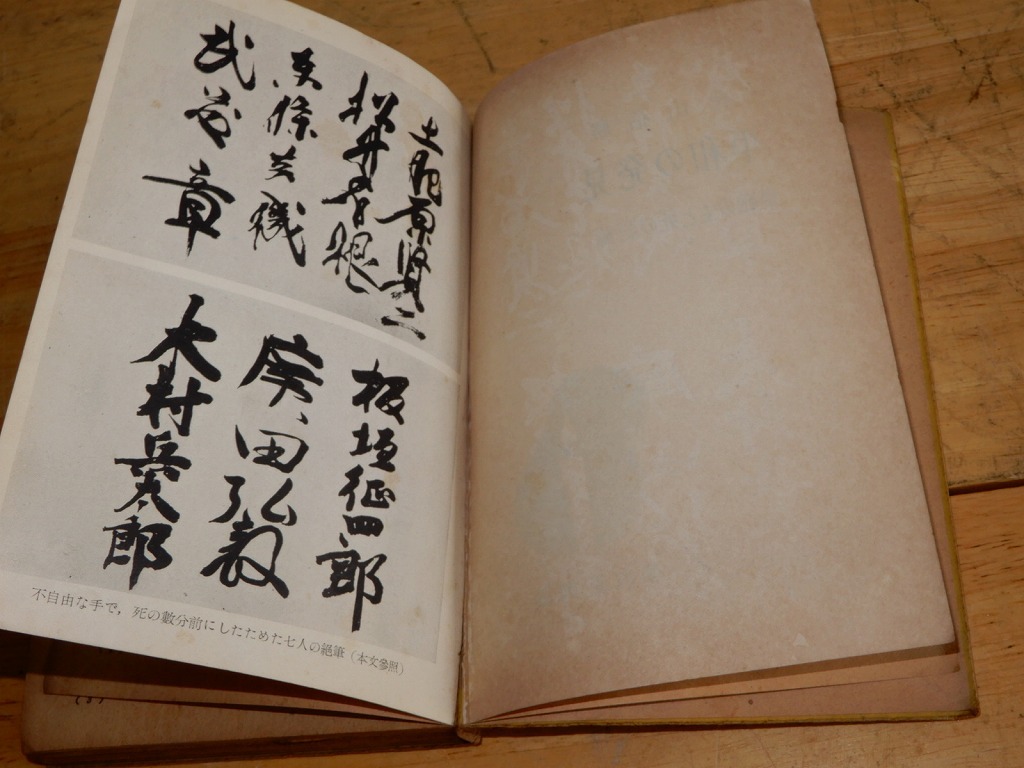 土肥原賢二
松井石根
東條英機
武藤章
板垣征四郎
廣田弘毅
木村兵太郎
不自由な手で，死の數分前にしたためた七人の絶筆（本文參照）